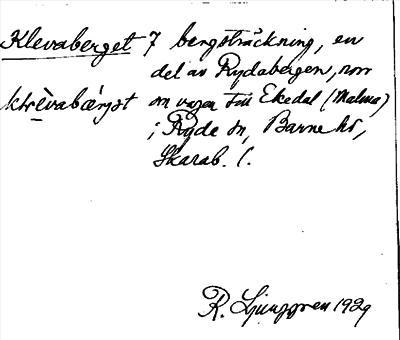 Klevaberget 7 bergsträckning, en
del av Rydabergen, norr
klèvabærjət om vägen till Ekedal (Malma)
i Ryde sn, Barne hd,
Skarab. l.
R. Ljunggren 1929